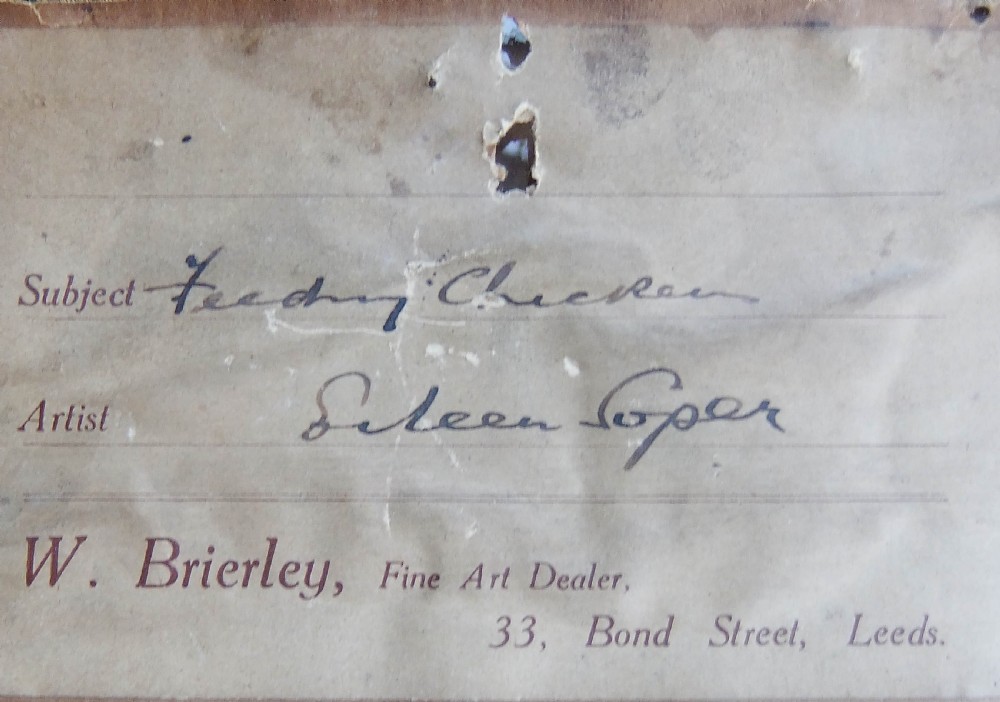 Subject Feeding Chickens
Artist Eileen Soper
W. Brierley, Fine Art Dealer,
33, Bond Street, Leeds.